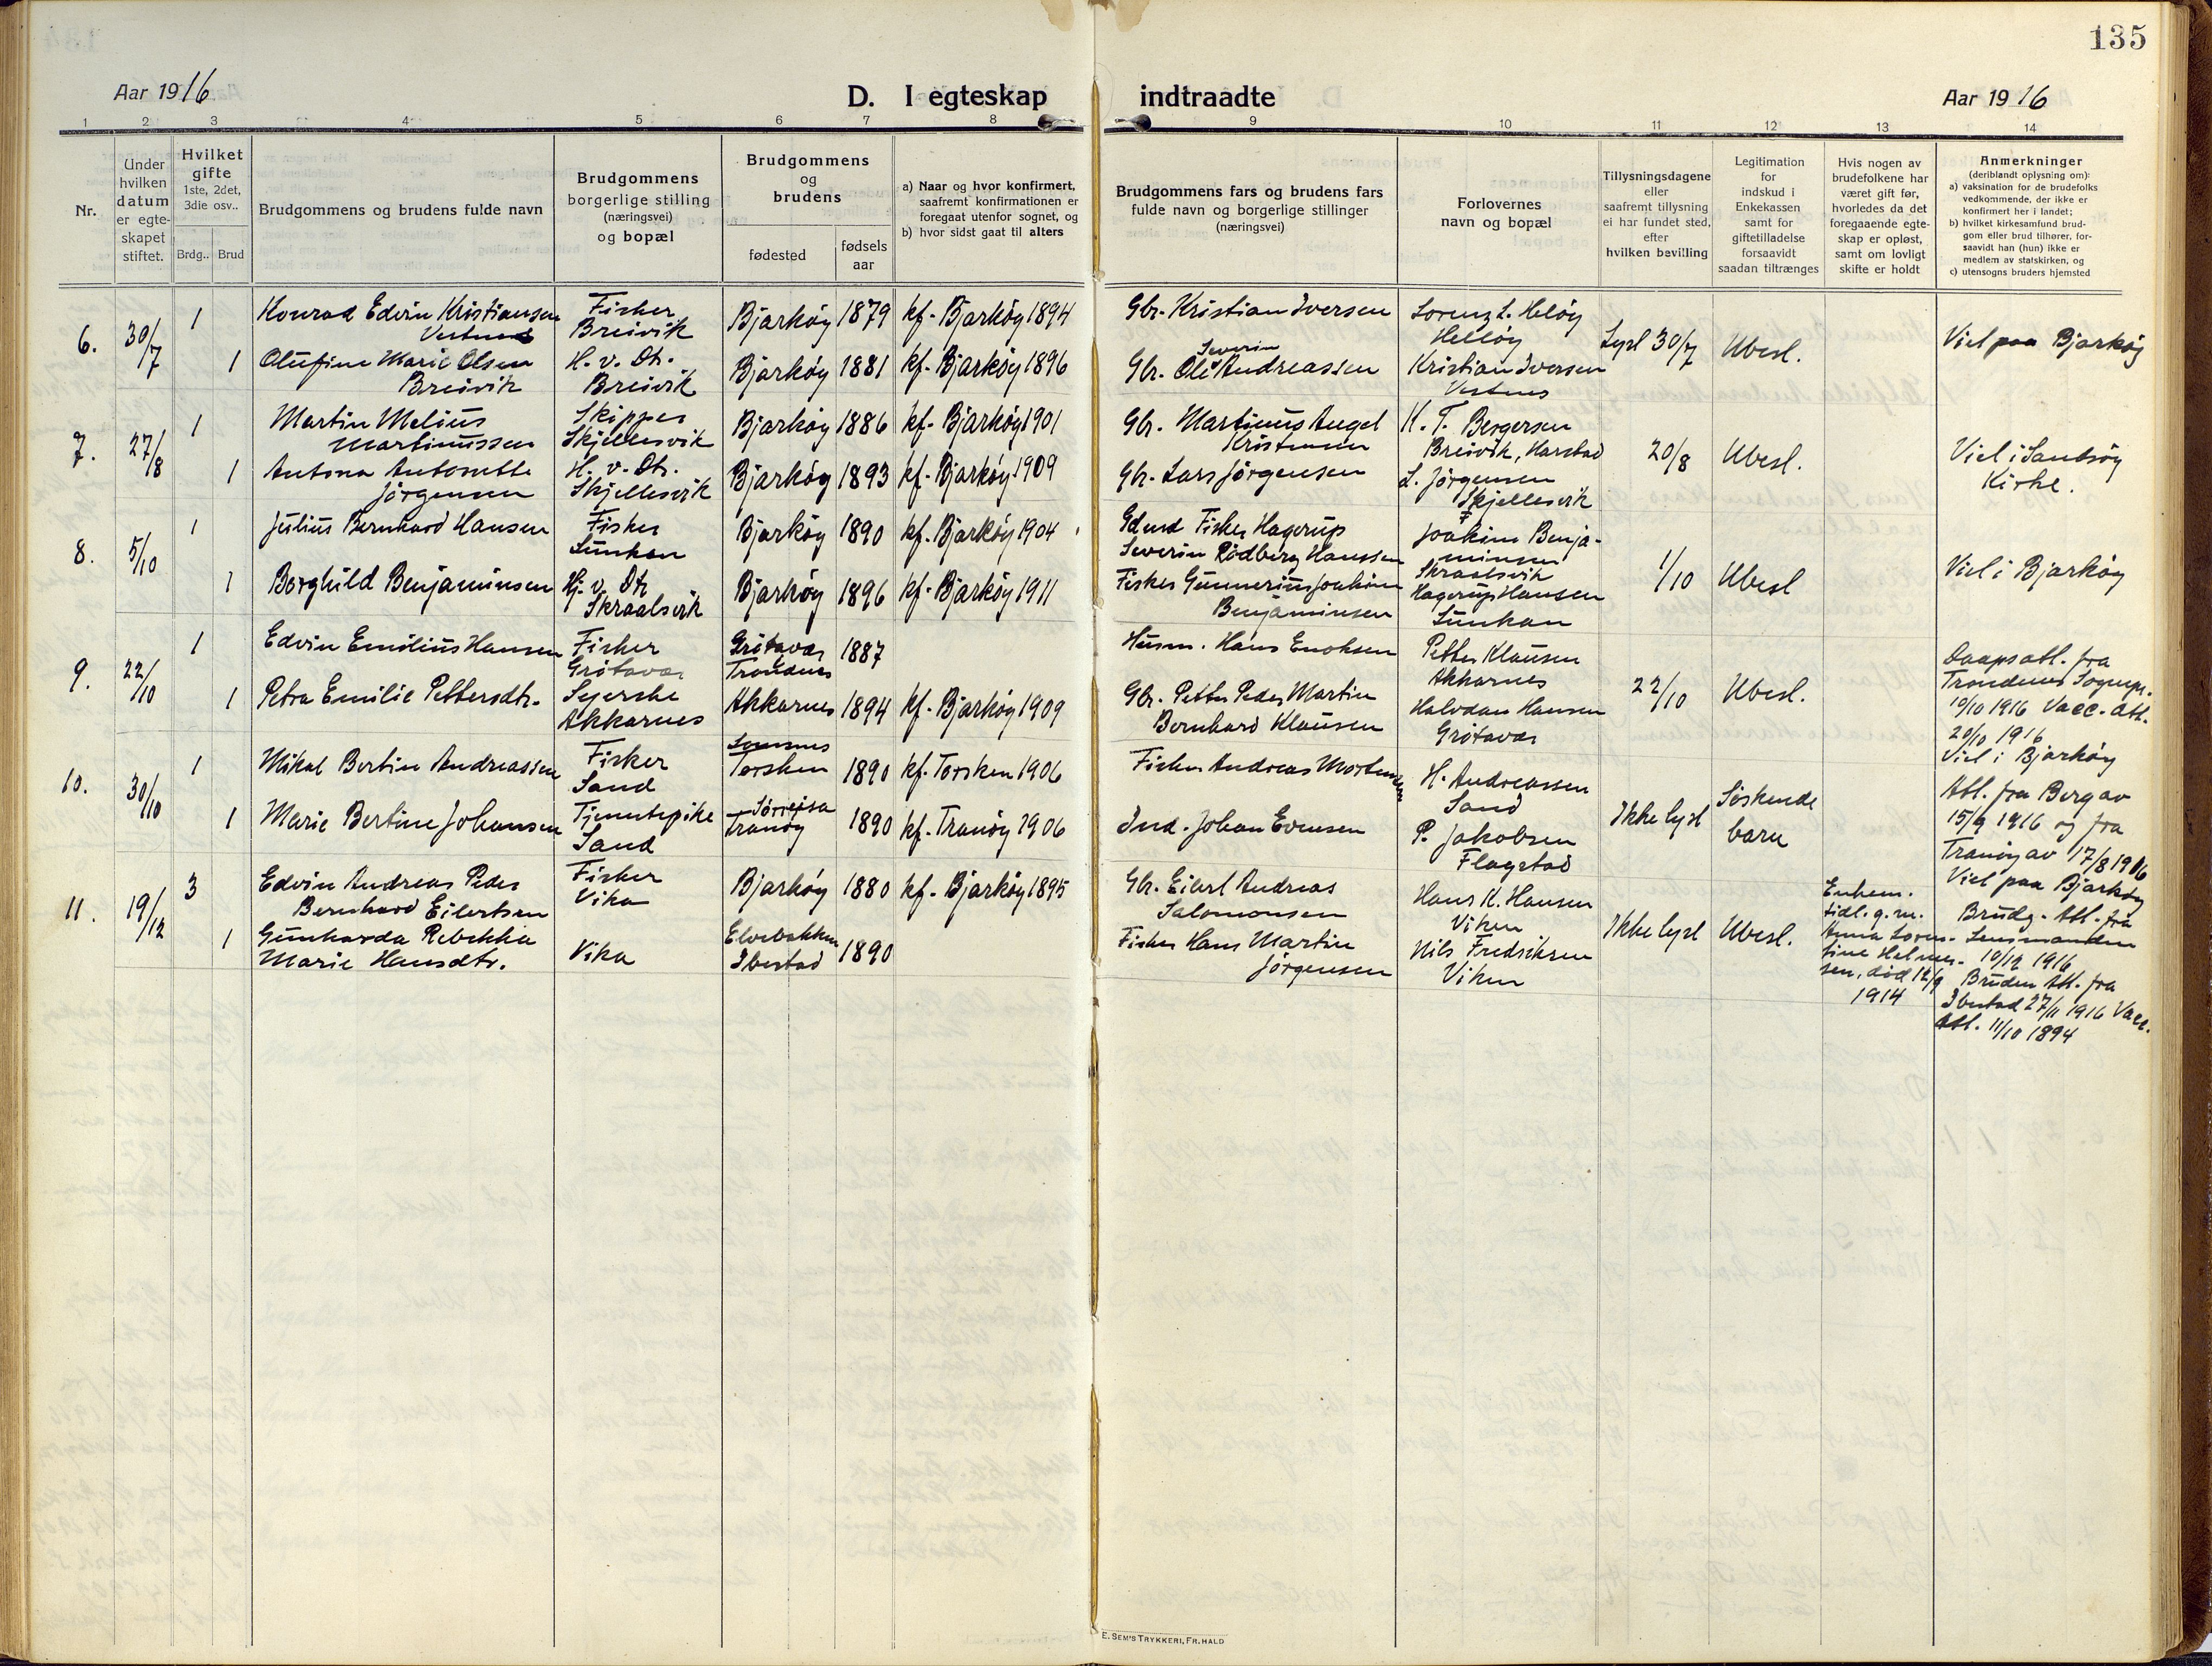 135
Aar 1916
D. I egteskap
indtraadte
Aar 1916
1 2 3 4 5 6 7 8 9 10 11 12 13 14
Nr.
Under
hvilken
datum
er egte-
skapet
stiftet.
Hvilket
gifte
1ste, 2det,
3die osv..
Brdg..
Brud
Brudgommens og brudens fulde navn
Brudgommens
borgerlige stilling
(næringsvei)
og bopæl
Brudgommens
og
brudens
fødested
fødsels
aar
a) Naar og hvor konfirmert,
saafremt konfirmationen er
foregaat utenfor sognet, og
b) hvor sidst gaat til alters
Brudgommens fars og brudens fars
fulde navn og borgerlige stillinger
(næringsvei)
Forlovernes
navn og bopæl
Tillysningsdagene
eller
saafremt tillysning
ei har fundet sted,
efter
hvilken bevilling
Legitimation
for
indskud i
Enkekassen
samt for
giftetilladelse
forsaavidt
saadan tiltrænges
Hvis nogen av
brudefolkene har
været gift før,
hvorledes da det
foregaaende egte-
skap er opløst,
samt om lovligt
skifte er holdt
Anmerkninger
(deriblandt oplysning om):
a) vaksination for de brudefolks
vedkommende, der ikke er
konfirmert her i landet;
b) hvilket kirkesamfund brud-
gom eller brud tilhører, for-
saavidt han (hun) ikke er
medlem av statskirken, og
c) utensogns bruders hjemsted
6.
30/7
1
Konrad Edvin Kristiansen
Vestnes
Fisker
Breivik
Bjarkøy
1879
kf. Bjarkøy 1894
Gbr. Kristian Iversen
Lorenz L. Heløy
Helløy
Lyst 30/7
Ubesl.
Viet paa Bjarkøy
1
Olufine Marie Olsen
Breivik
H. v. Dt.
Breivik
Bjarkøy
1881
kf. Bjarkøy 1896
Severin
Gbr. Ole Andreassen
Kristian Iversen
Vestnes
7.
27/8
1
Martin Melius
Martinussen
Skipper
Skjellesvik
Bjarkøy
1886
kf. Bjarkøy 1901
Gbr. Martinus Angel
Kristensen
K. T. Bergersen
Breivik, Harstad
20/8
Ubesl.
Viet i Sandsøy
Kirke.
1
Antona Antonette
Jörgensen
H. v. Dt.
Skjellesvik
Bjarkøy
1893
kf. Bjarkøy 1909
Gbr. Lars Jörgensen
L. Jörgensen
Skjellesvik
8.
5/10
1
Julius Bernhard Hansen
Fisker
Sunkan
Bjarkøy
1890
kf. Bjarkøy 1904
Gdmd Fisker Hagerup
Severin Rödberg Hanssen
Joakim Benja-
minsen
Skraalsvik
1/10
Ubesl
Viet i Bjarkøy
1
Borghild Benjaminsen
Hj. v. Dt
Skraalsvik
Bjarkøy
1896
kf. Bjarkøy 1911
Fisker Gunnerius Joakim
Benjaminsen
Hagerup Hansen
Sunkan
9.
22/10
1
Edvin Emilius Hansen
Fisker
Grötavær
Grötavær
Trondenes
1887
Husm. Hans Enoksen
Petter Klausen
Akkarnes
22/10
Ubesl.
Daapsatt. fra
Trondenes Sognepr.
19/10 1916 Vacc. att.
20/10 1916
Viet i Bjarkøy
1
Petra Emilie Pettersdtr.
Syerske
Akkarnes
Akkarnes
1894
kf. Bjarkøy 1909
Gbr. Petter Peder Martin
Bernhard Klausen
Halvdan Hansen
Grötavær
10.
30/10
1
Mikal Bertin Andreassen
Fisker
Sand
Torsken
1890
kf. Torsken 1906
Fisker Andreas Mortensen
H. Andreassen
Sand
Ikke lyst
Søskende
barn
Att. fra Berg av
15/9 1916 og fra
Tranøy av 17/8 1906
Viet paa Bjarkøy
1
Marie Bertine Johansen
Tjenestepike
Sand
Sørreisa
Tranøy
1890
kf. Tranøy 1906
Ind. Johan Evensen
P. Jakobsen
Flagstad
11.
19/12
3
Edvin Andreas Peder
Bernhard Eilertsen
Fisker
Vika
Bjarkøy
1880
kf. Bjarkøy 1895
Gbr. Eilert Andreas
Salomonsen
Hans K. Hansen
Viken
Ikke lyst
Ubesl.
Enkem.
tidl. g. m.
Anna Loren-
tine Helmer-
sen, död 12/9
1914
Brudg. Att. fra
Lensmanden
10/12 1916
Bruden Att. fra
Ibestad 27/11 1916 Vacc.
Att. 11/10 1894
1
Gunharda Rebekka
Marie Hansdtr.
Vika
Elvebakken
Ibestad
1890
Fisker Hans Martin
Jörgensen
Nils Fredriksen
Viken
E. SEM'S TRYKKERI, FR. HALD